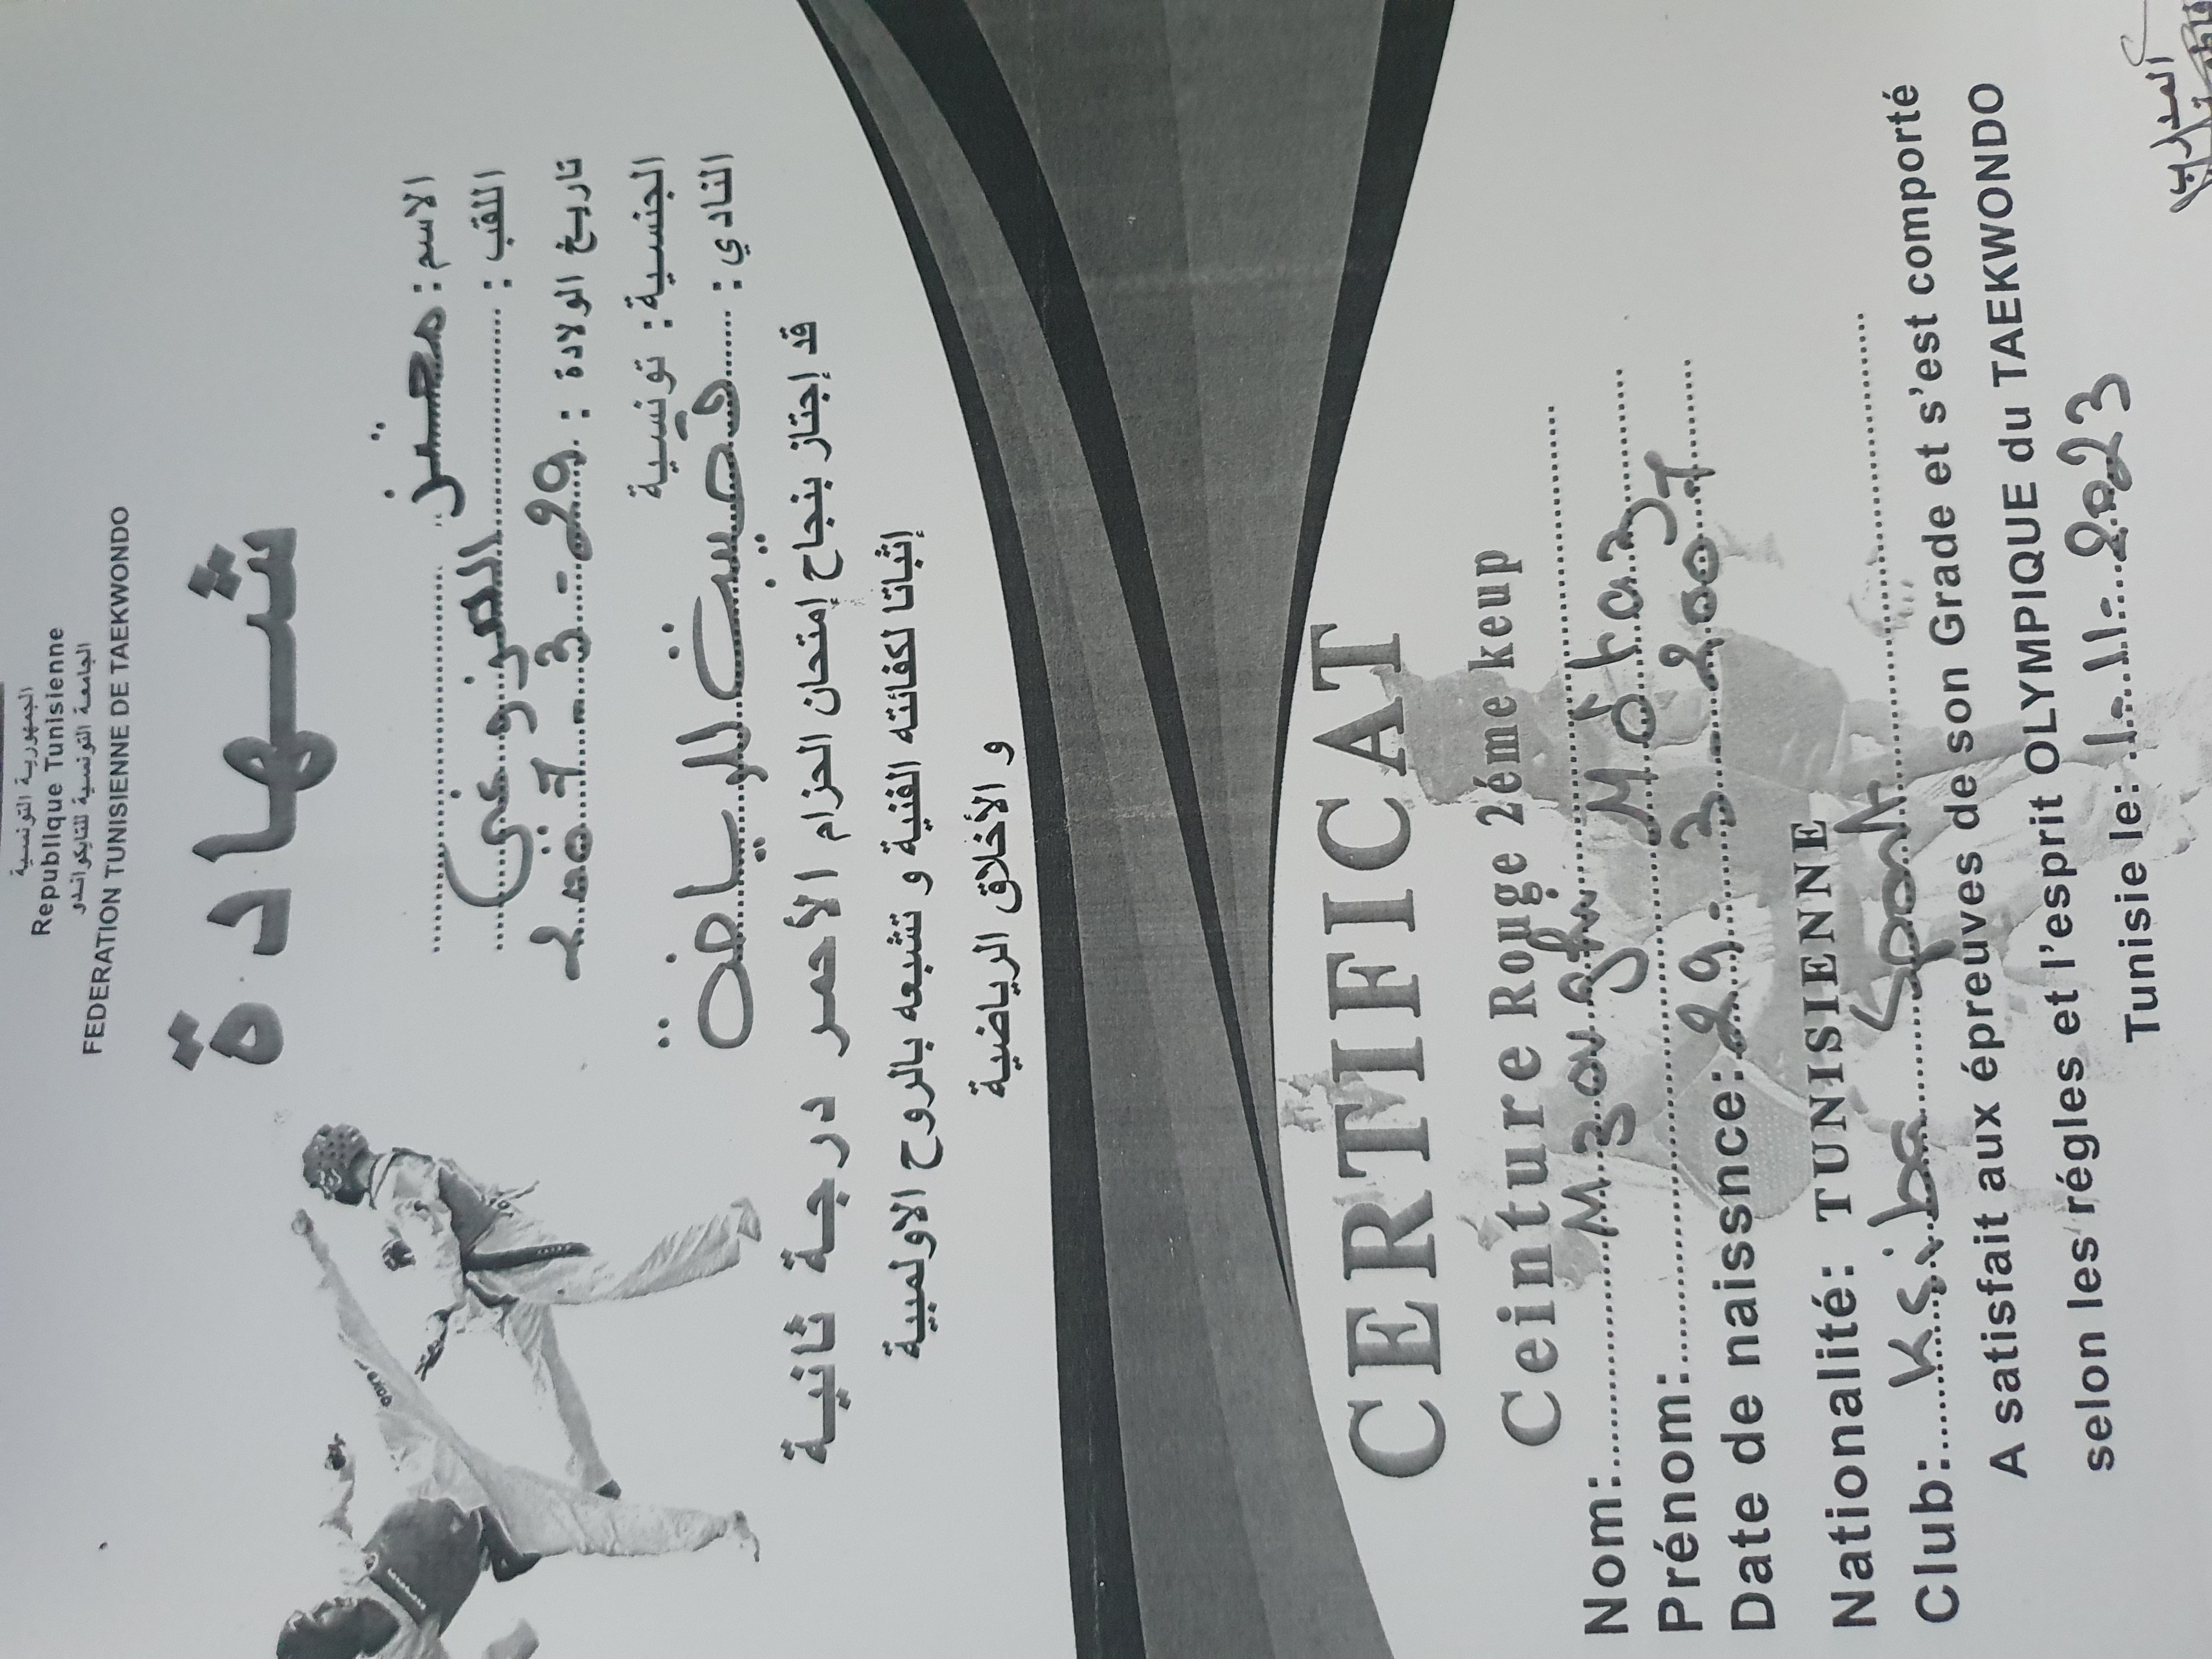 الجمهورية التونسية
Republique Tunisienne
الجامعة التونسية للتايكواندو
FEDERATION TUNISIENNE DE TAEKWONDO
شهادة
الاسم : معتز
اللقب : المزوغي
تاريخ الولادة : 29 - 3 - 2007
الجنسية : تونسية
النادي : قصيبة الرياضة
قد إجتاز بنجاح إمتحان الحزام الأحمر درجة ثانية
إثباتا لكفائته الفنية و تشبعه بالروح الاولمبية
و الأخلاق الرياضية
CERTIFICAT
Ceinture Rouge 2éme keup
Nom: Mzoughi
Prénom: Môtaz
Date de naissnce: 29. 3. 2007
Nationalité: TUNISIENNE
Club: Ksiba Sport
A satisfait aux épreuves de son Grade et s'est comporté
selon les régles et l'esprit OLYMPIQUE du TAEKWONDO
Tunisie le: 1-11-2023
المدرب